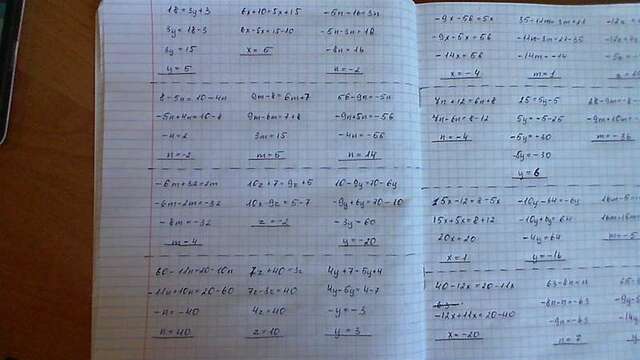 18=3y+3 6x+10=5x+15 -5n-16=3n
3y=18-3 6x-5x=15-10 -5n-3n=16
3y=15 x=5 -8n=16
y=5 n=-2
8-5n=10-4n 9m-8=6m+7 56-9n=-5n
-5n+4n=10-8 9m-6m=7+8 -9n+5n=-56
-n=2 3m=15 -4n=-56
n=-2 m=5 n=14
-6m+32=2m 10z+7=9z+5 10-9y=70-6y
-6m-2m=-32 10z-9z=5-7 -9y+6y=70-10
-8m=-32 z=-2 -3y=60
m=4 y=-20
60-11n=20-10n 7z+40=3z 4y+7=5y+4
-11n+10n=20-60 7z-3z=40 4y-5y=4-7
-n=-40 4z=40 -y=-3
n=40 z=10 y=3
-9x-56=5x 35-11m=3m+21
-9x-5x=56 -11m-3m=21-35
-14x=56 -14m=-14
x=-4 m=1
7n+12=6n+8 25=5y-5
7n-6n=8-12 -5y=-5-25
n=-4 -5y=-30
-5y=-30
y=6
15x-12=8-5x -10y-64=-6y
15x+5x=8+12 -10y+6y=64
20x=20 -4y=64
x=1 y=-16
40-12x=20-11x 63-8n=n
-12x+11x=20-40 -8n-n=-63
x=-20 -9n=-63
n=7